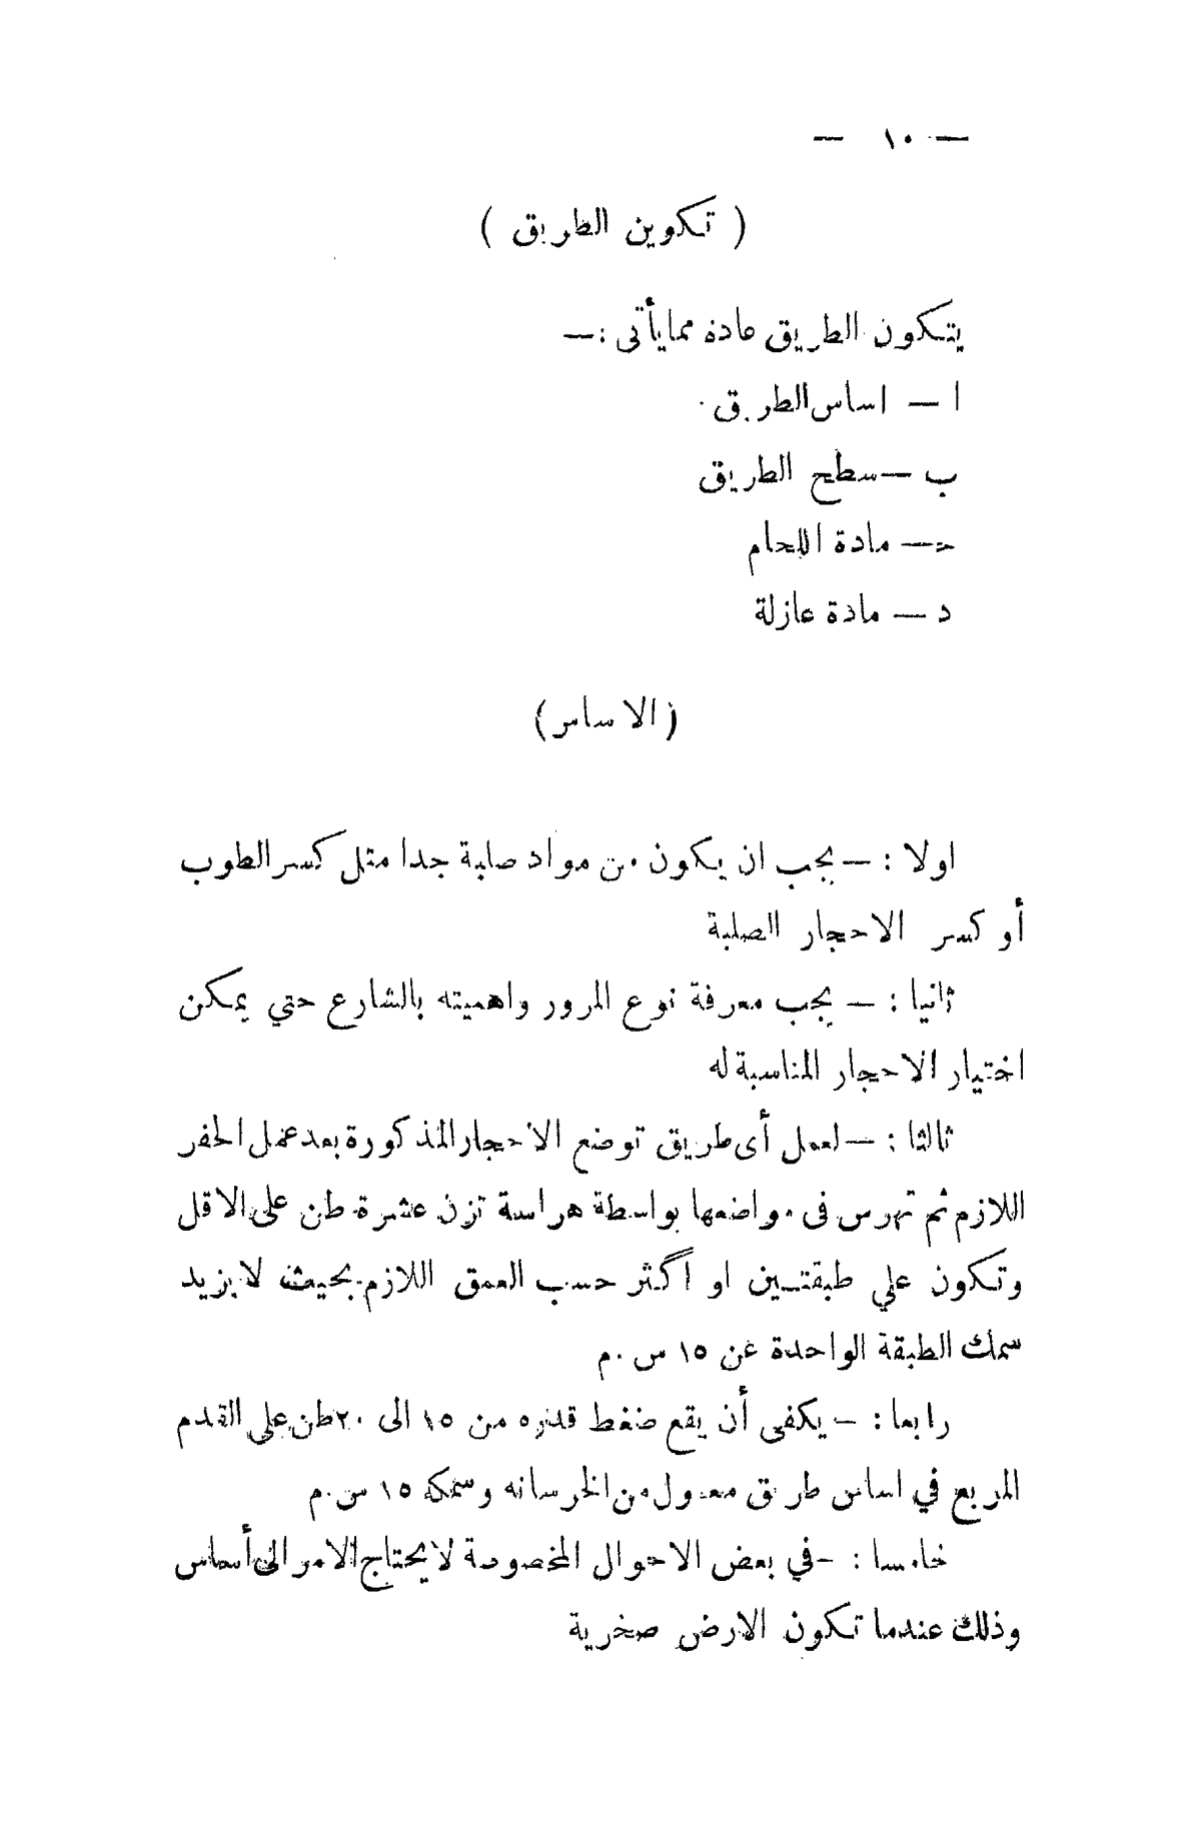 — ١٠ —
( تكوين الطريق )
يتكون الطريق عادة ممايأتى :—
ا — اساس الطريق .
ب — سطح الطريق
حـ — مادة اللحام
د — مادة عازلة
( الاساس )
اولا : — يجب ان يكون من مواد صلبة جدا مثل كسر الطوب
أو كسر الاحجار الصلبة
ثانيا : — يجب معرفة نوع المرور واهميته بالشارع حتي يمكن
اختيار الاحجار المناسبة له
ثالثا : — لعمل أى طريق توضع الاحجار المذكورة بعد عمل الحفر
اللازم ثم تهرس فى مواضعها بواسطة هراسة تزن عشرة طن على الاقل
وتكون علي طبقتين او اكثر حسب العمق اللازم بحيث لا يزيد
سمك الطبقة الواحدة عن ١٥ س.م
رابعا : — يكفى أن يقع ضغط قدره من ١٥ الى ٢٠ طن على القدم
المربع في اساس طريق معمول من الخرسانه وسمكه ١٥ س.م
خامسا : — في بعض الاحوال المخصوصة لا يحتاج الامر الى أساس
وذلك عندما تكون الارض صخرية